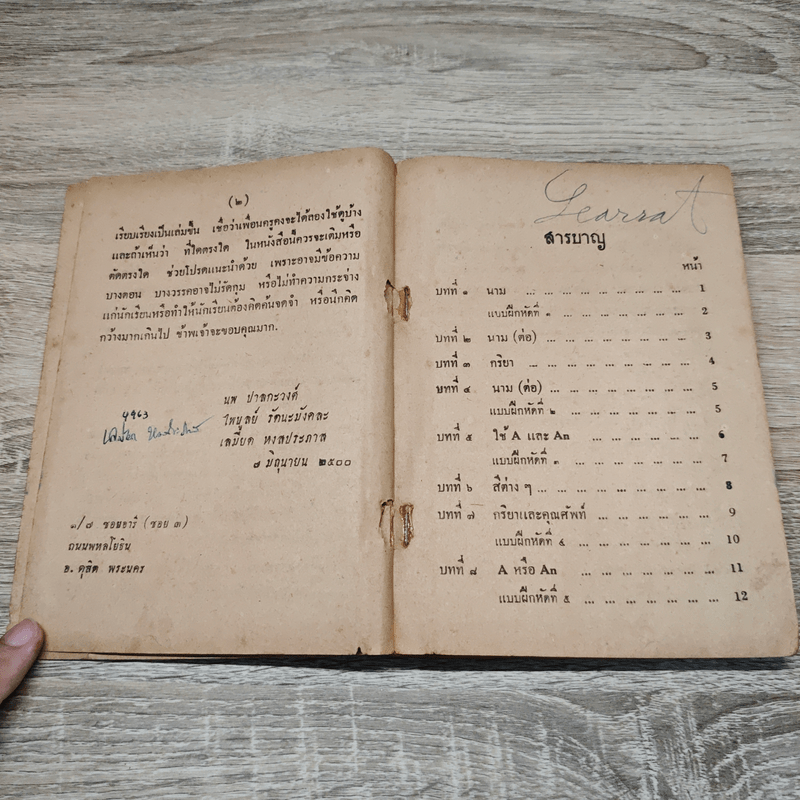 (๒)
เรียบเรียงเป็นเล่มขึ้น เชื่อว่าเพื่อนครูคงจะได้ลองใช้ดูบ้าง
และถ้าเห็นว่า ที่ใดตรงใด ในหนังสือนี้ควรจะเติมหรือ
ตัดตรงใด ช่วยโปรดแนะนำด้วย เพราะอาจมีข้อความ
บางตอน บางวรรคอาจไม่รัดกุม หรือไม่ทำความกระจ่าง
แก่นักเรียนหรือทำให้นักเรียนต้องคิดค้นจดจำ หรือนึกคิด
กว้างมากเกินไป ข้าพเจ้าจะขอบคุณมาก.
นพ ปาลกะวงศ์
ไพบูลย์ รัตนะมังคละ
เสมียด หงสประภาส
๘ มิถุนายน ๒๕๐๐
๑/๘ ซอยอารี (ซอย ๓)
ถนนพหลโยธิน
อ. ดุสิต พระนคร
Learrat
สารบาญ
หน้า
บทที่ ๑ นาม ... ... ... ... ... ... ... 1
แบบฝึกหัดที่ ๑ ... ... ... ... ... ... 2
บทที่ ๒ นาม (ต่อ) ... ... ... ... ... ... 3
บทที่ ๓ กริยา ... ... ... ... ... ... ... 4
บทที่ ๔ นาม (ต่อ) ... ... ... ... ... ... 5
แบบฝึกหัดที่ ๒ ... ... ... ... ... ... 5
บทที่ ๕ ใช้ A และ An ... ... ... ... ... 6
แบบฝึกหัดที่ ๓ ... ... ... ... ... ... 7
บทที่ ๖ สีต่าง ๆ ... ... ... ... ... ... ... 8
บทที่ ๗ กริยาและคุณศัพท์ ... ... ... ... ... 9
แบบฝึกหัดที่ ๔ ... ... ... ... ... ... 10
บทที่ ๘ A หรือ An ... ... ... ... ... ... 11
แบบฝึกหัดที่ ๕ ... ... ... ... ... ... 12